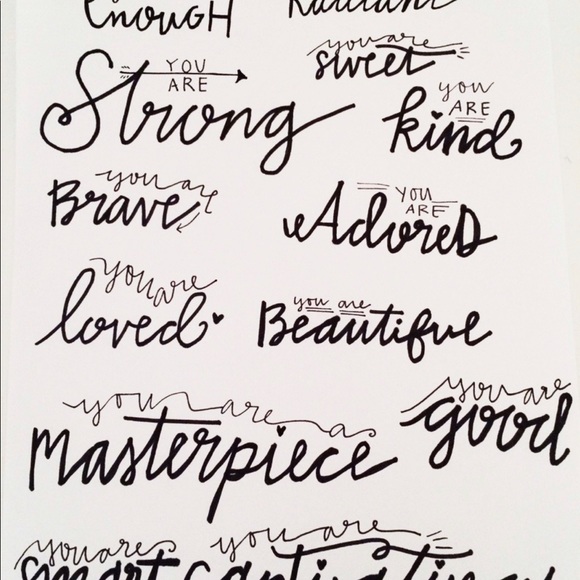 Enough
Radiant
you are
sweet
YOU
ARE
Strong
you
ARE
kind
you are
Brave
YOU
ARE
Adored
you are
loved
you are
Beautiful
you are
good
you are a
masterpiece
you are
smart
you are
captivating